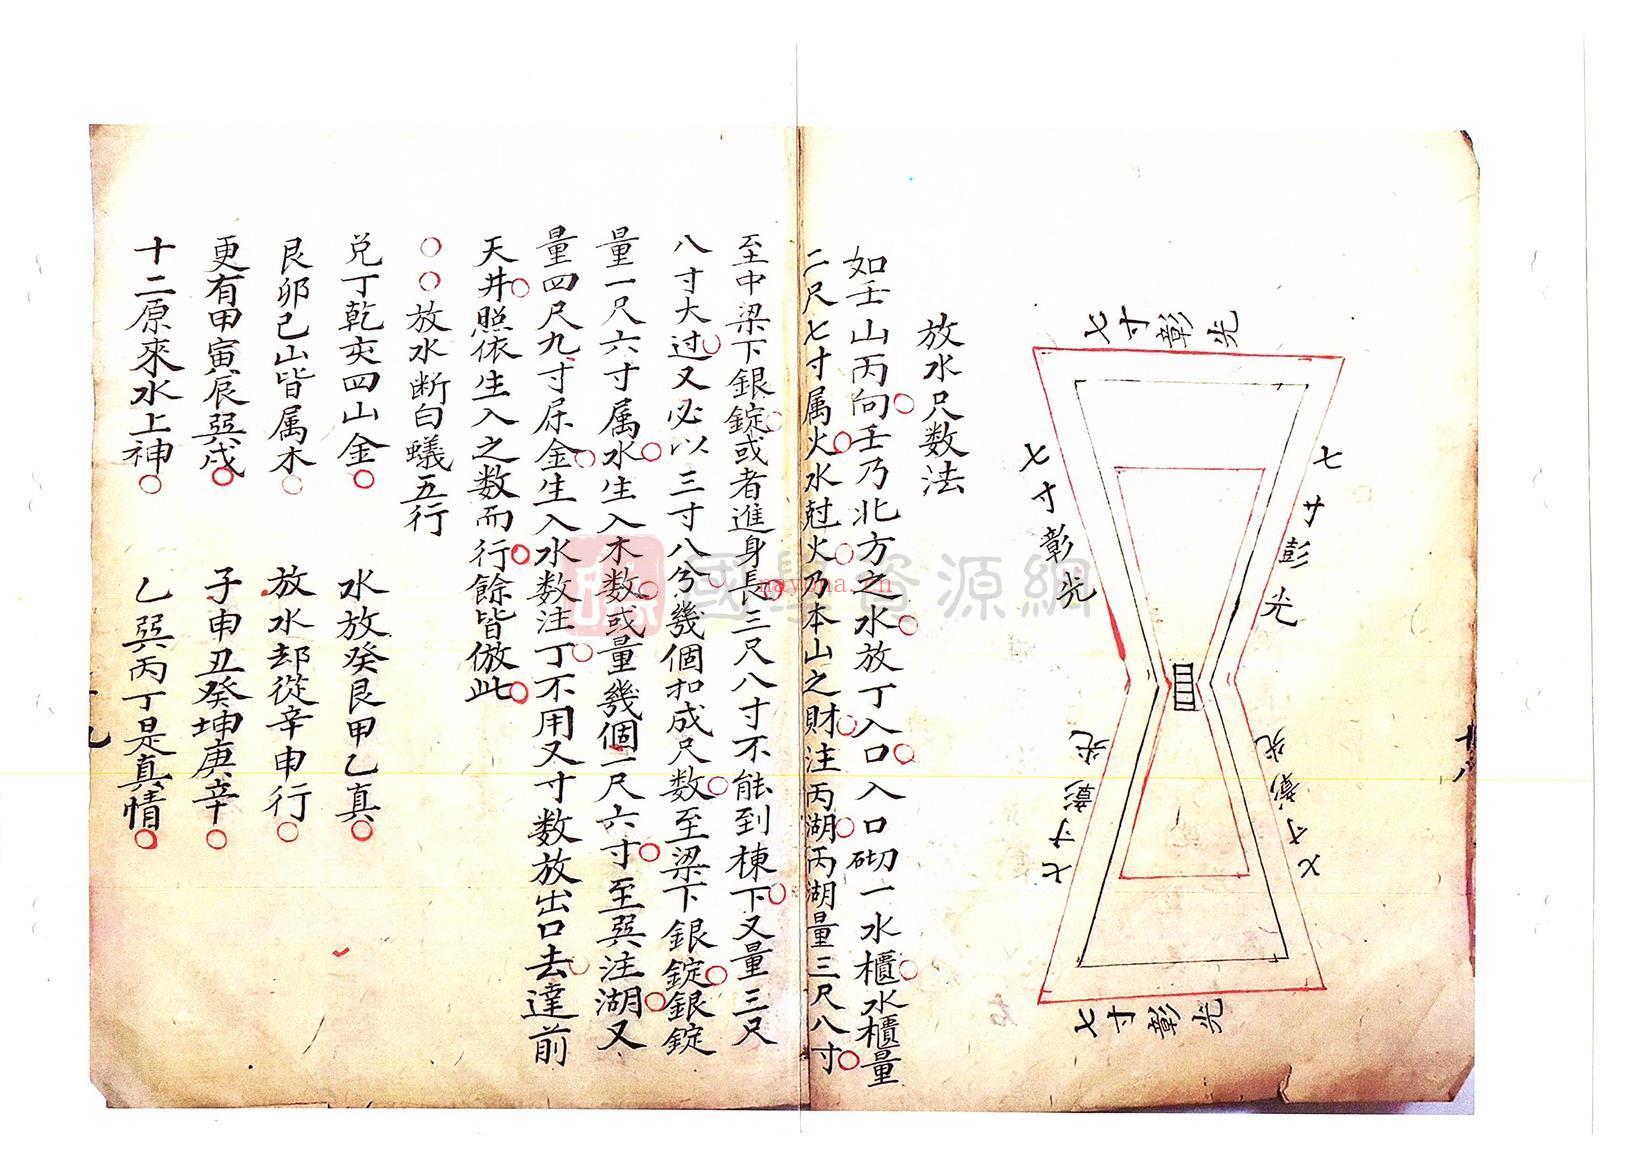 七寸彰光
七寸彭光
七寸彰光
七寸彰光
七寸彰光
七寸彰光
十八
放水尺数法
如壬山丙向壬乃北方之水放丁入口入口砌一水櫃水櫃量
二尺七寸属火水尅火乃本山之財注丙湖丙湖量三尺八寸
至中梁下銀錠或者進身長三尺八寸不能到棟下又量三尺
八寸大过又必以三寸八分幾個扣成尺数至梁下銀錠銀錠
量一尺六寸属水生入木数或量幾個一尺六寸至巽注湖又
量四尺九寸屬金生入水数注丁不用又寸数放出口去達前
天井照依生入之数而行餘皆倣此
放水断白蟻五行
兑丁乾亥四山金 水放癸艮甲乙真
艮卯已山皆属木 放水却從辛申行
更有甲寅辰巽戍 子申丑癸坤庚辛
十二原來水上神 乙巽丙丁是真情
國學資源網
nayona.cn